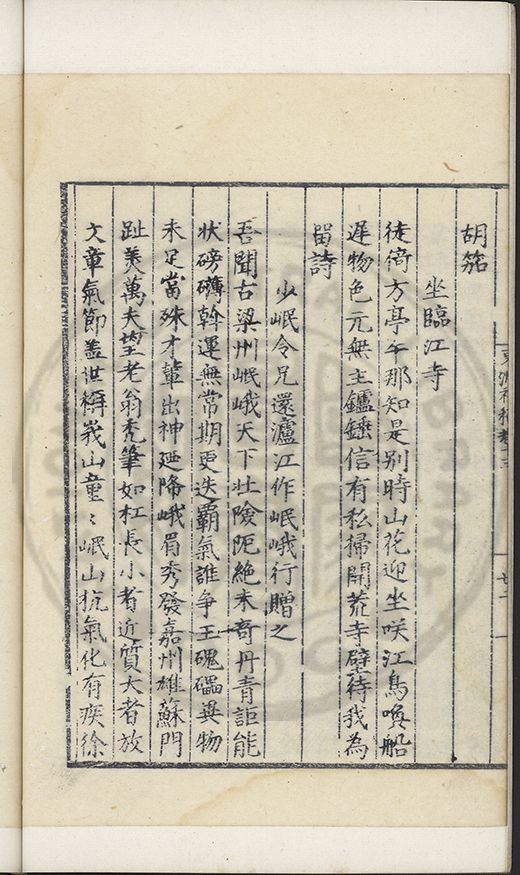 胡笳
坐臨江寺
徒倚方亭午那知是别時山花迎坐咲江鳥喚船
遲物色元無主鑪錘信有私掃開荒寺壁待我為
畱詩
少岷令兄還瀘江作岷峨行贈之
吾聞古梁州岷峨天下壯險阨絶来奇丹青詎能
状磅礴斡運無常期更迭霸氣誰争王磈礧異物
未足當殊才輩出神迺降峨眉秀發嘉州雄蘇門
趾美萬夫望老翁秃筆如杠長小者近質大者放
文章氣節蓋世稱峩山童〻岷山抗氣化有疾徐